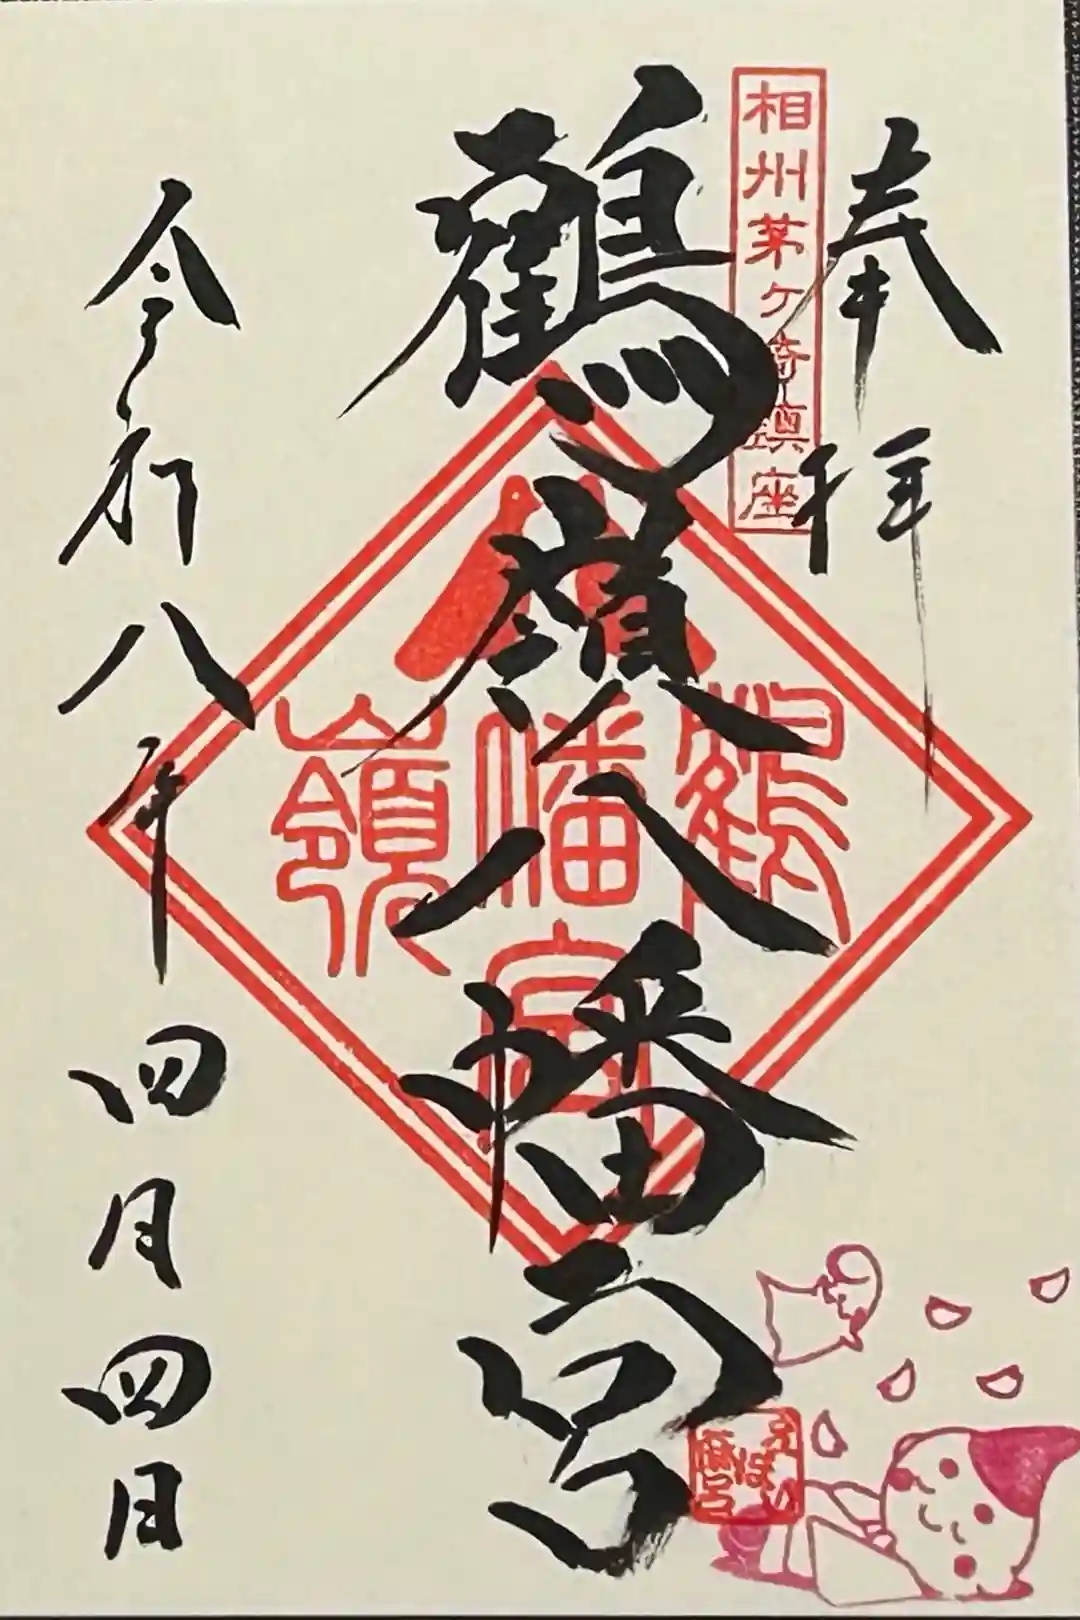 奉拝
相州茅ヶ崎鎮座
鶴嶺八幡宮
鶴
幡宮
嶺
令和八年四月四日